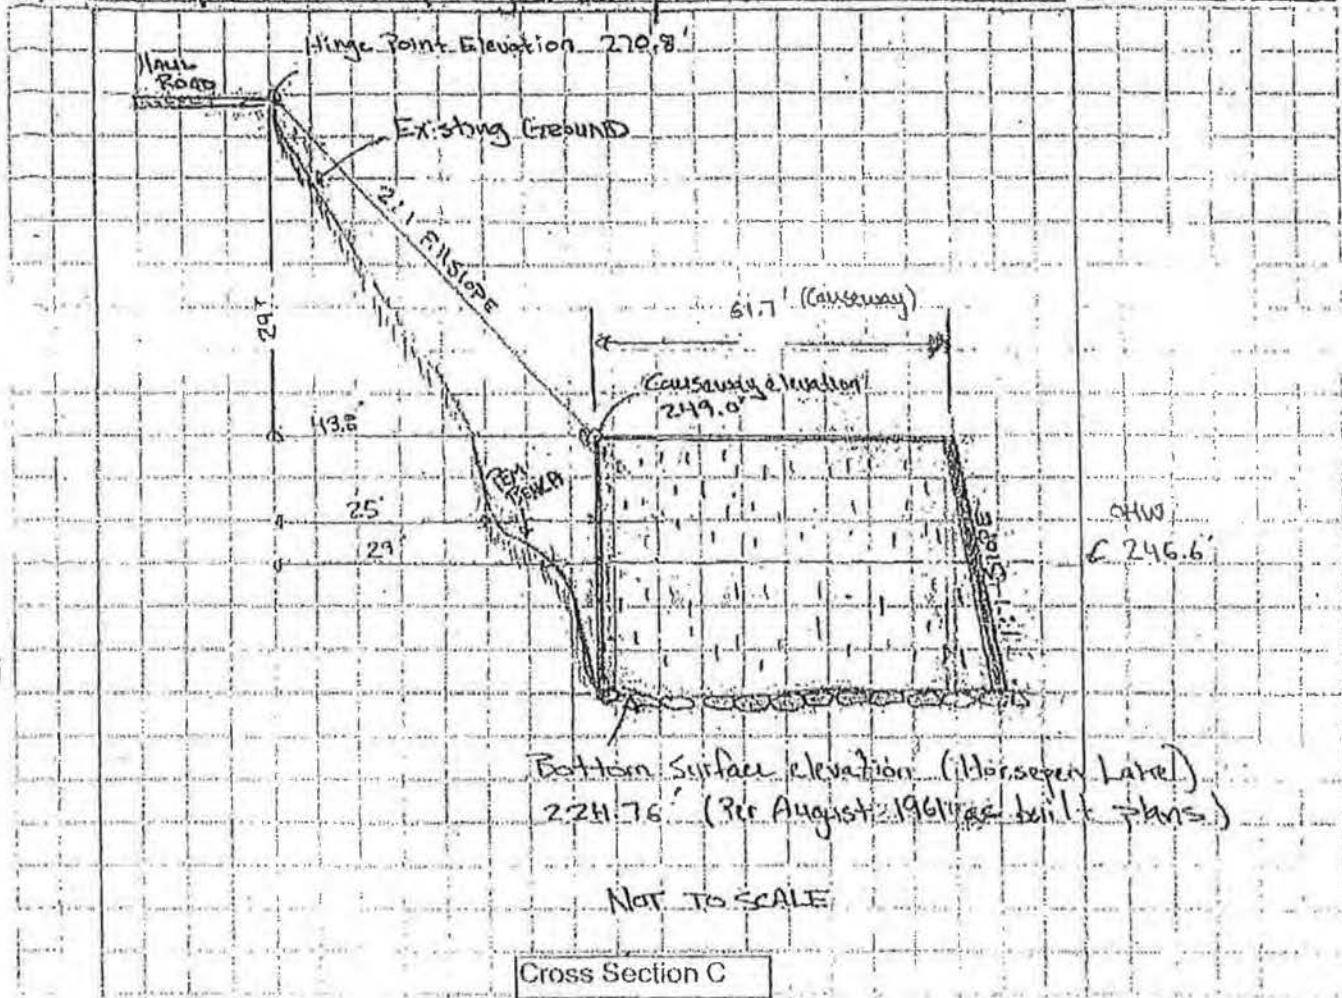 Hinge Point Elevation 270.8'
HAUL
ROAD
Existing GROUND
2:1 FillSLOPE
61.7' (Causeway)
Causeway elevation
249.0'
25'
29'
OHW
246.6'
Bottom Surface elevation (Horsepen Lake)
224.76' (Per August 1961 as built plans)
NOT TO SCALE
Cross Section C